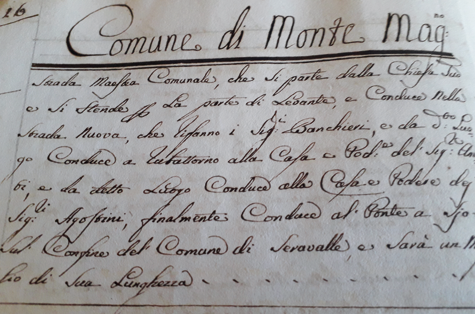 16
Comune di Monte Mag:
Strada Maestra Comunale, che si parte dalla Chiesa
e si stende p La parte di Levante, e Conduce nella
Strada Nuova, che Sig:ri Banchieri, e da d:to Luo
go Conduce a alla Casa e Pod:e del Sig:
e da detto Luogo Conduce alla Casa e Podere de
Sig:ri Agostini, finalmente Conduce al Ponte a
Sul Confine del Comune di Seravalle, e Sarà un M
lio di Sua Lunghezza